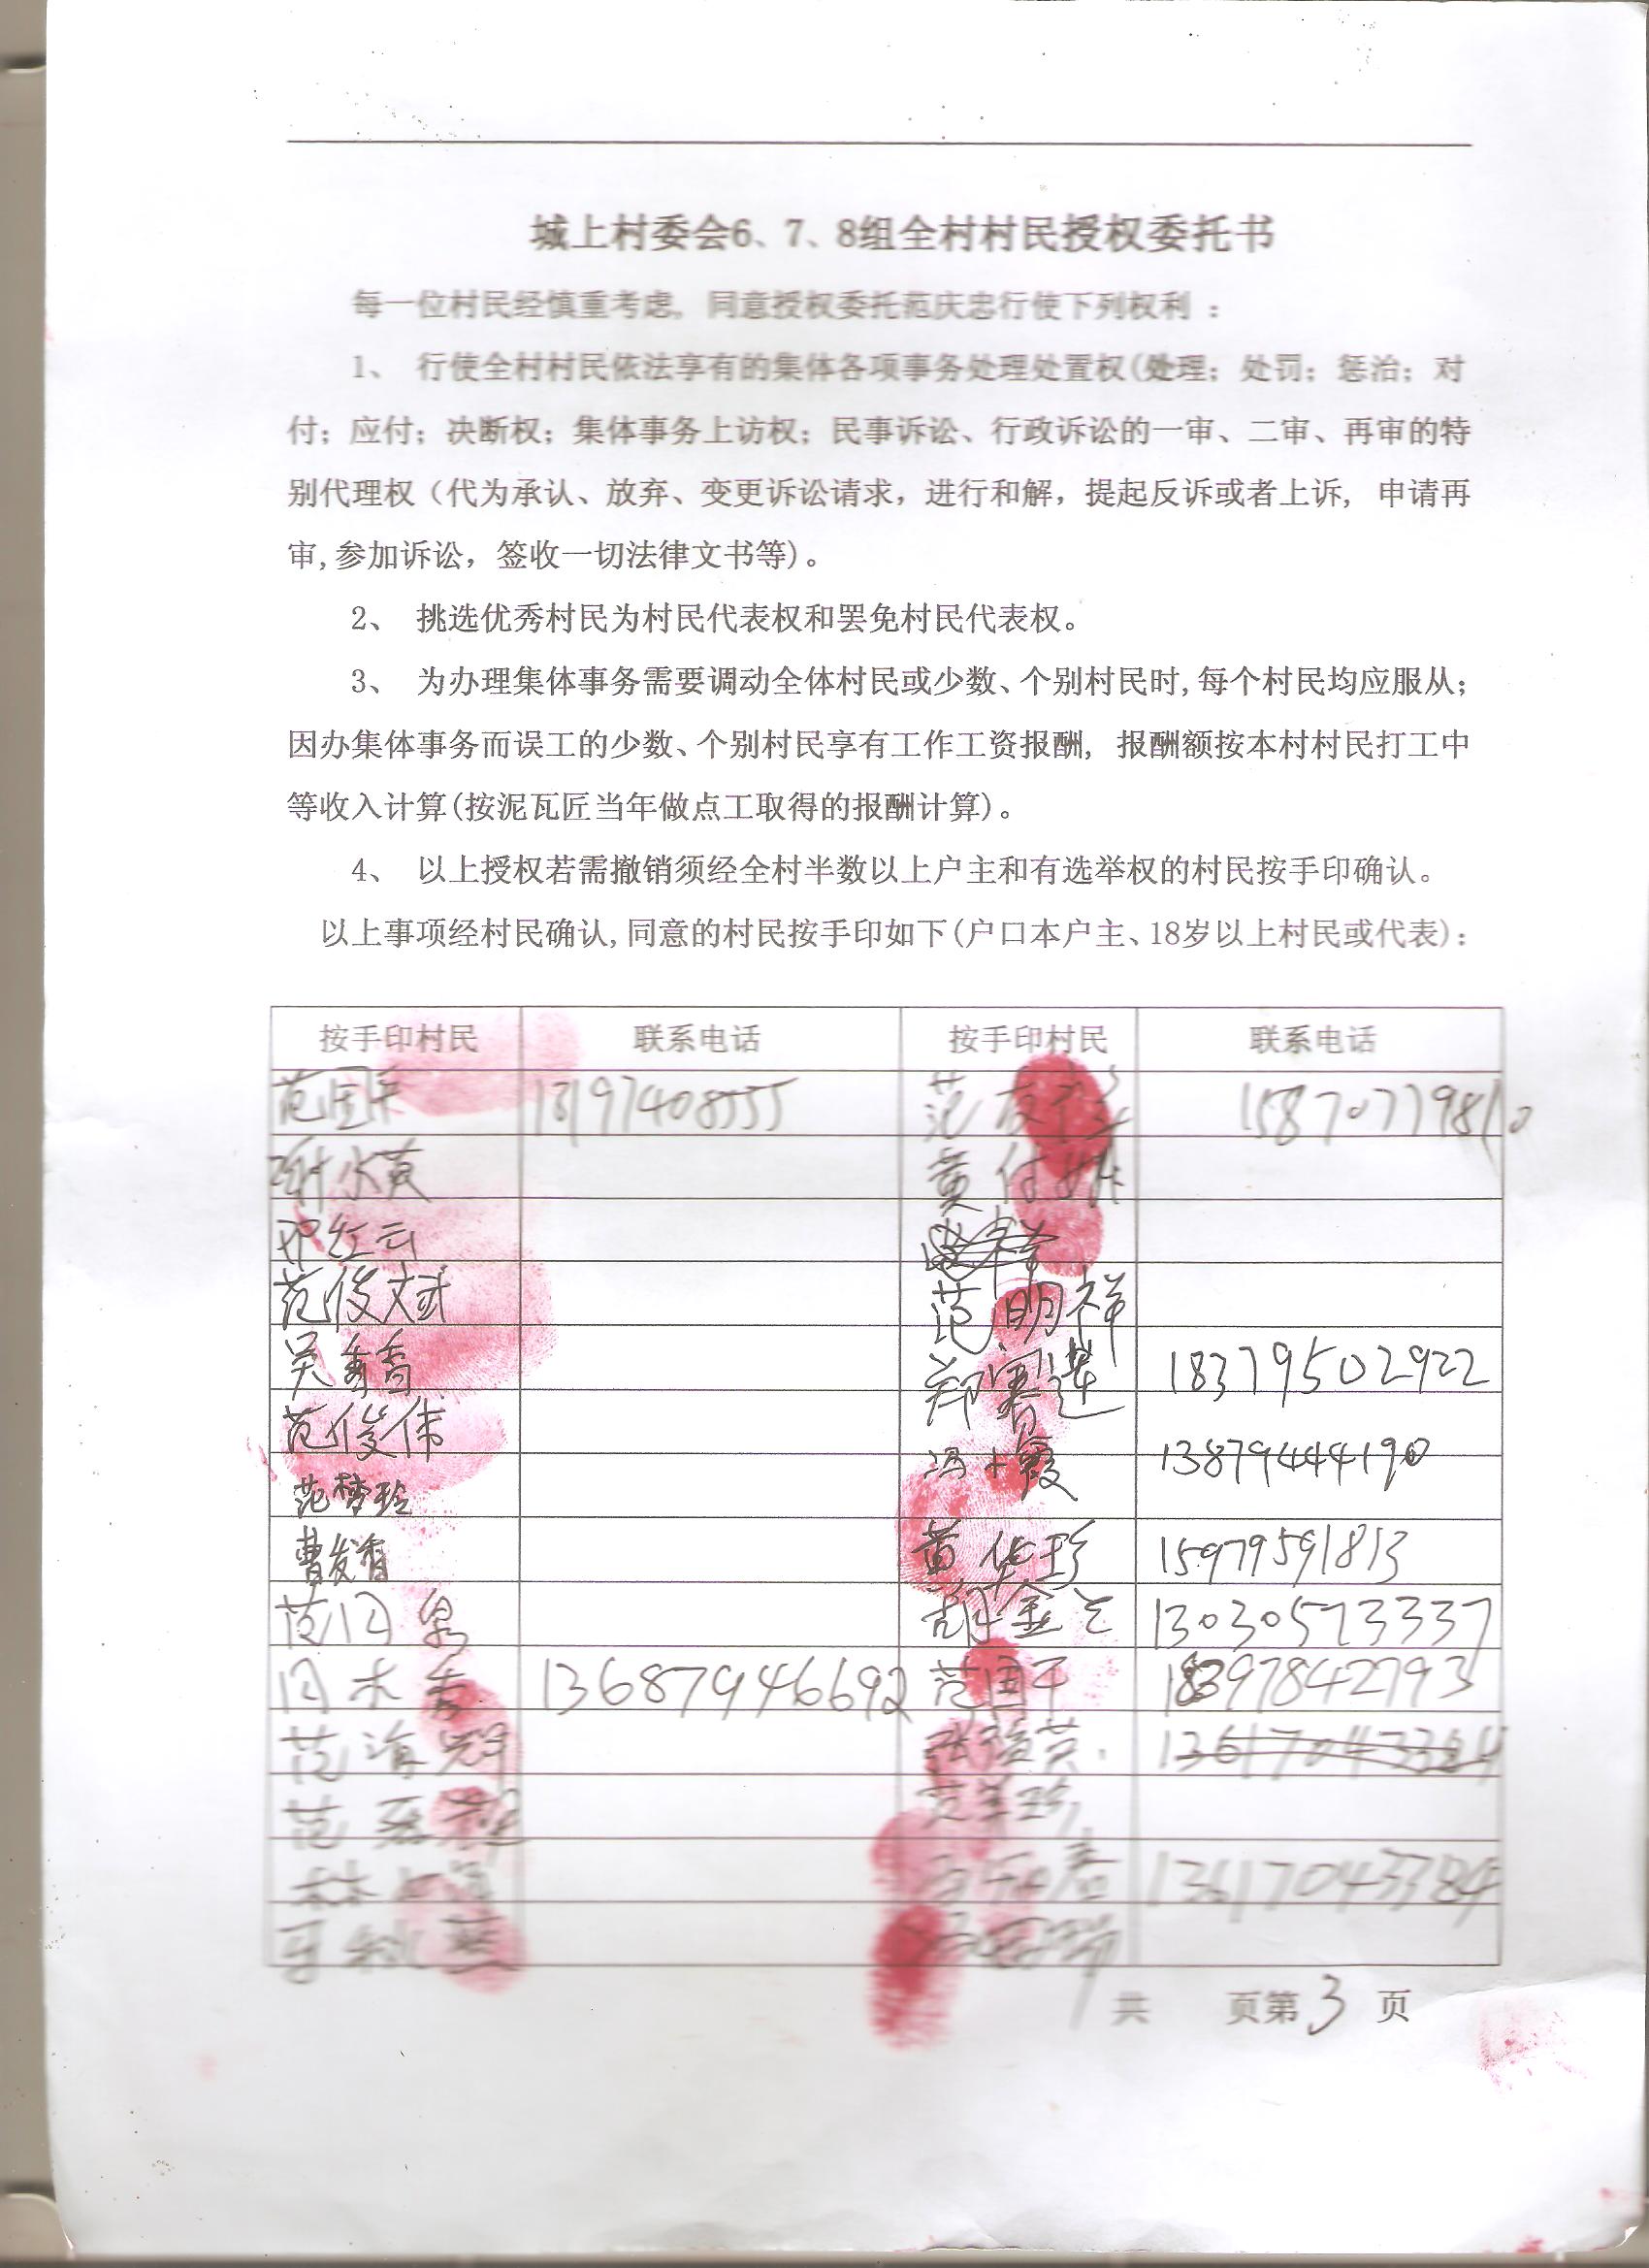 城上村委会6、7、8组全村村民授权委托书
每一位村民经慎重考虑，同意授权委托范庆忠行使下列权利：
1、 行使全村村民依法享有的集体各项事务处理处置权(处理；处罚；惩治；对
付；应付；决断权；集体事务上访权；民事诉讼、行政诉讼的一审、二审、再审的特
别代理权（代为承认、放弃、变更诉讼请求，进行和解，提起反诉或者上诉, 申请再
审,参加诉讼，签收一切法律文书等)。
2、 挑选优秀村民为村民代表权和罢免村民代表权。
3、 为办理集体事务需要调动全体村民或少数、个别村民时,每个村民均应服从；
因办集体事务而误工的少数、个别村民享有工作工资报酬, 报酬额按本村村民打工中
等收入计算(按泥瓦匠当年做点工取得的报酬计算)。
4、 以上授权若需撤销须经全村半数以上户主和有选举权的村民按手印确认。
以上事项经村民确认,同意的村民按手印如下(户口本户主、18岁以上村民或代表)：
按手印村民 联系电话 按手印村民 联系电话
范国平 13197408555 范 15870779810
谢水英 黄付
邓红云
范俊斌 范明祥
吴香 郑赛莲 18379502922
范俊伟 冯霞 13879444190
范梦玲
曹发香 黄花珍 15979591813
范 泉 胡金兰 13030573337
木秀 136879946692 范国平 18397842793
范海辉 张英
范
林 13617043384
秋燕
共 页第3页